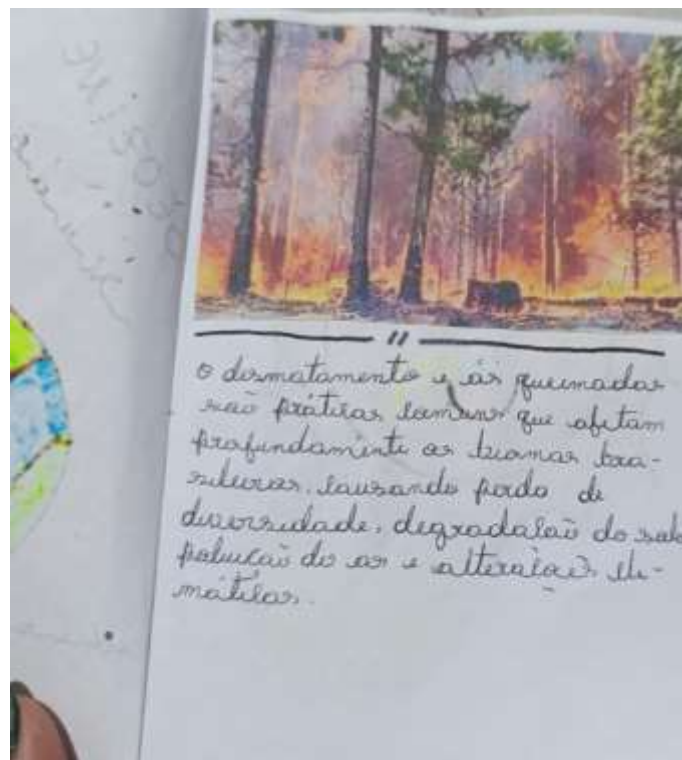 o desmatamento e as queimadas
são práticas comuns que afetam
profundamente os biomas bra-
sileiros, causando perda de
diversidade, degradação do solo
poluição do ar e alterações cli-
máticas.